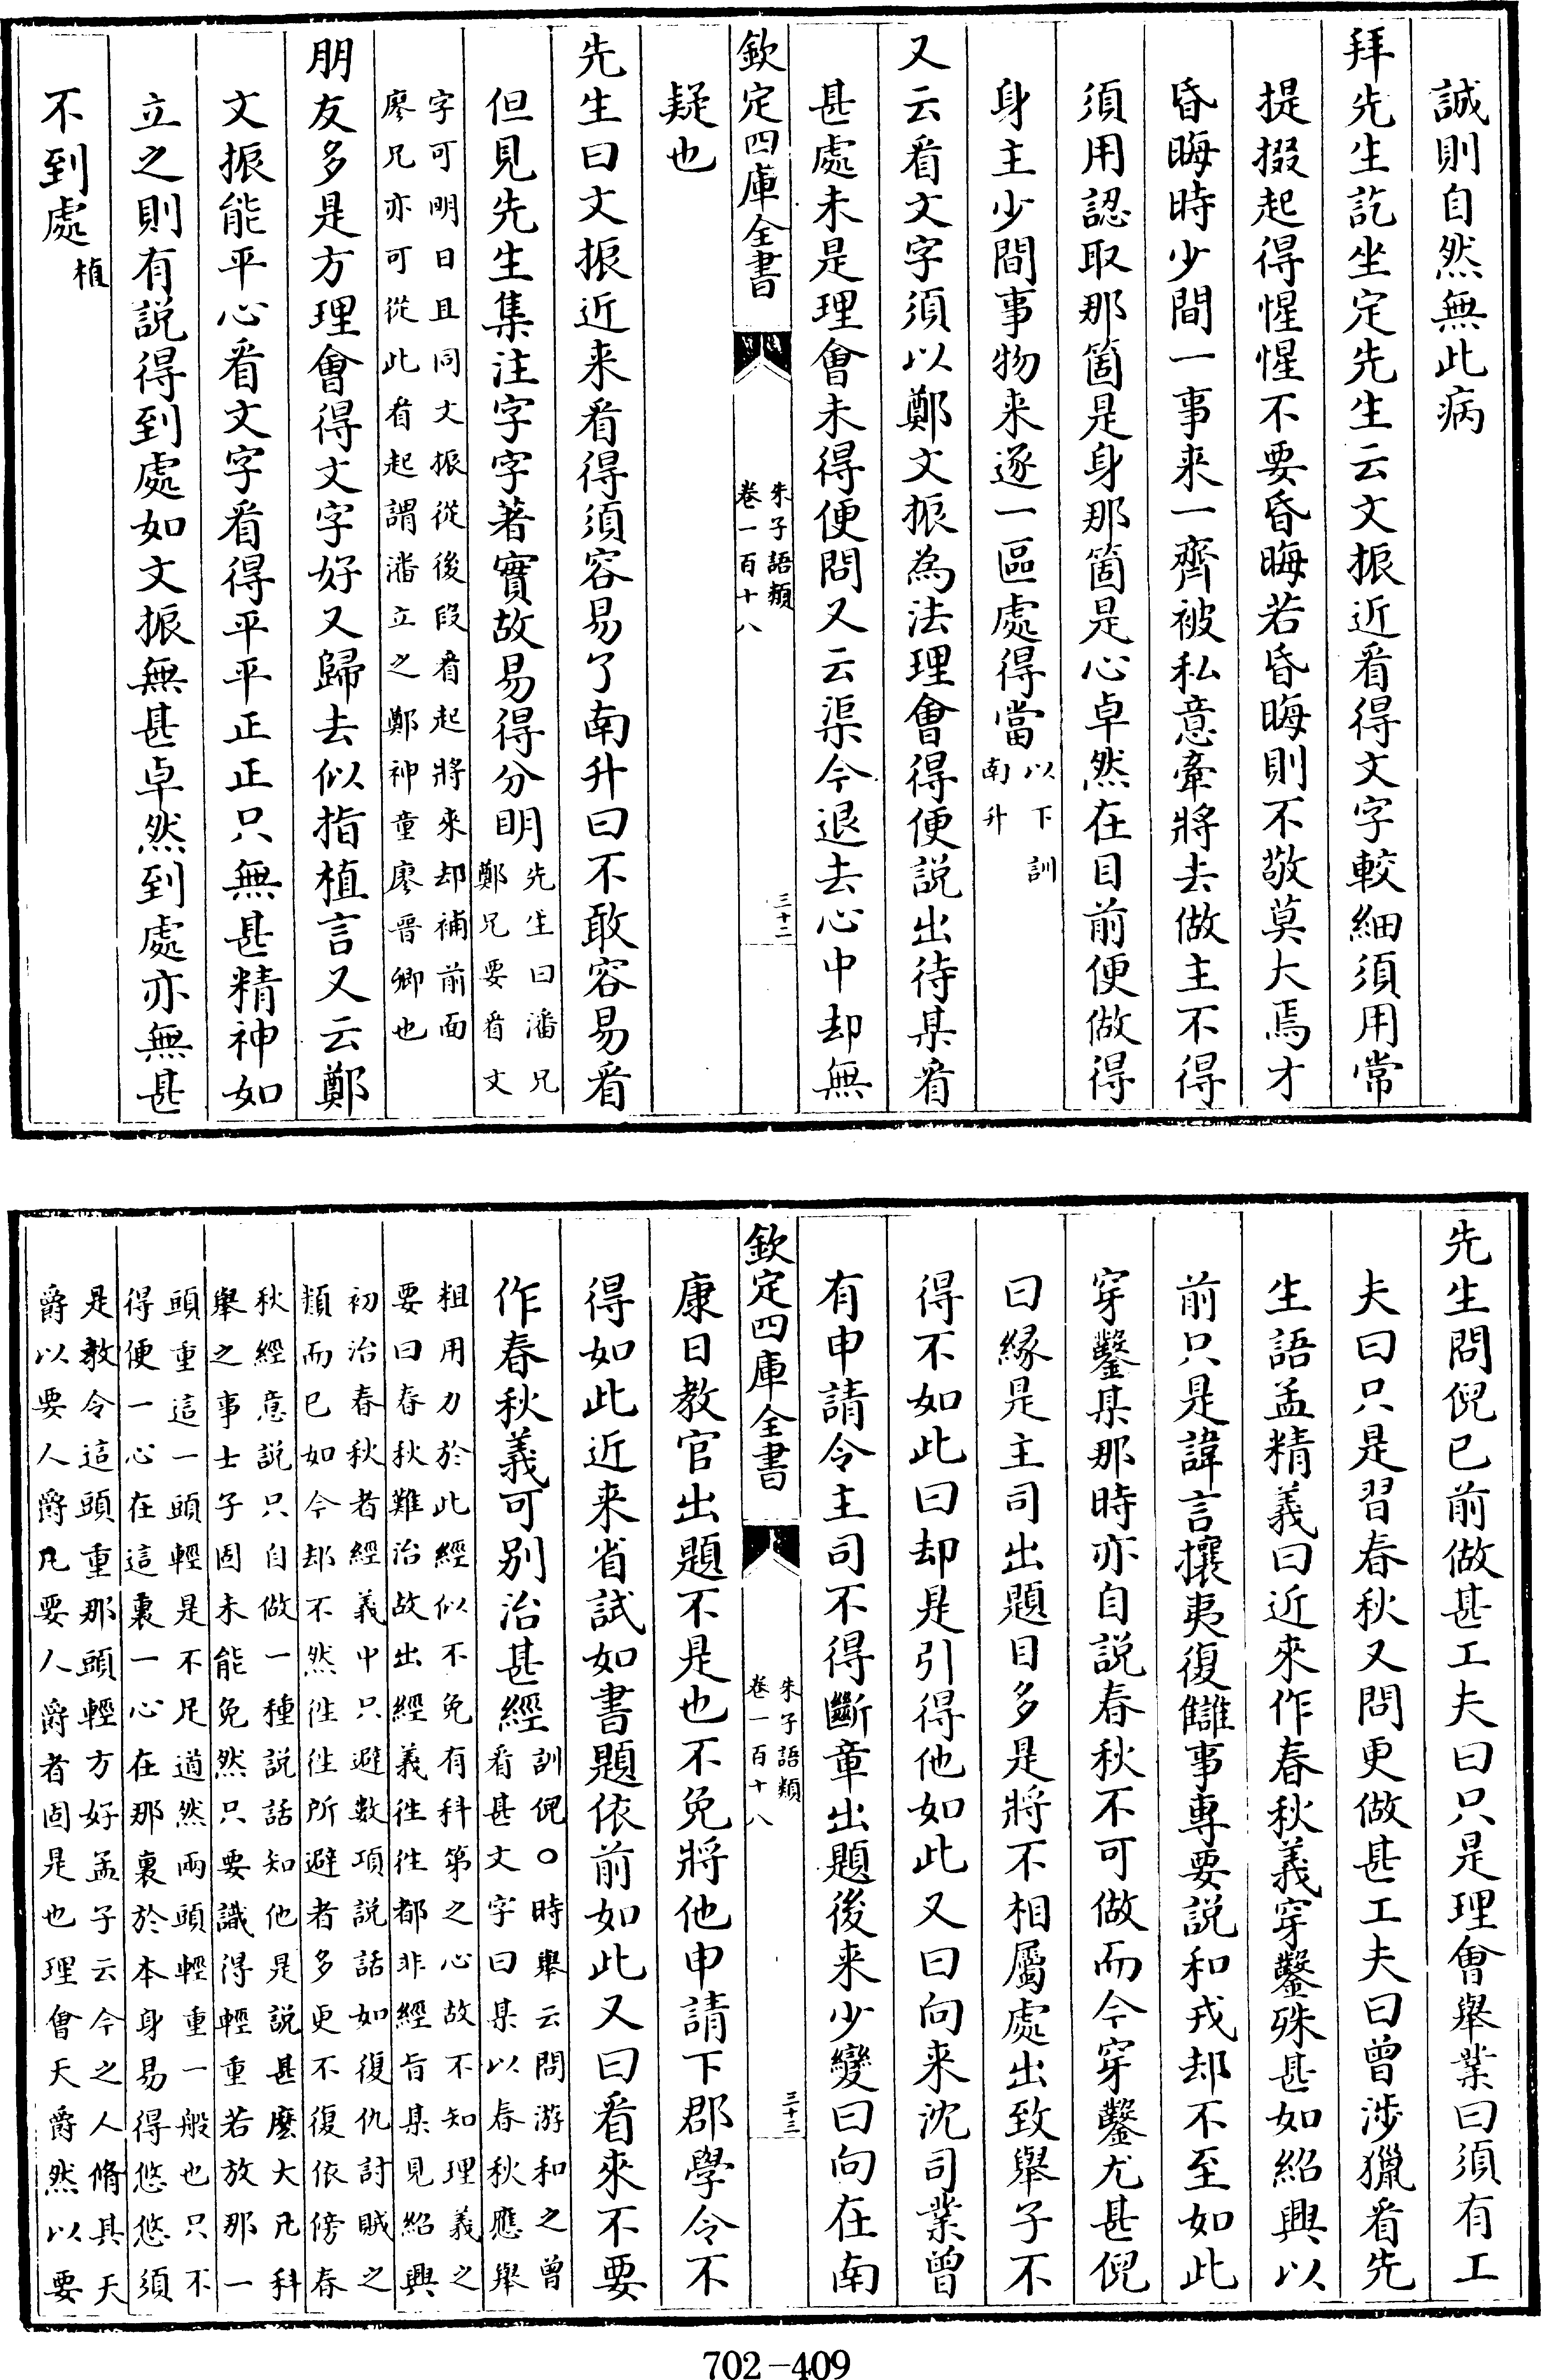 誠則自然無此病
拜先生訖坐定先生云文振近看得文字較細須用常
提掇起得惺惺不要昏晦若昏晦則不敬莫大焉才
昏晦時少間一事来一齊被私意牽將去做主不得
須用認取那箇是身那箇是心卓然在目前便做得
身主少間事物来逐一區處得當以下訓
南升
又云看文字須以鄭文振為法理會得便説出待某看
甚處未是理會未得便問又云渠今退去心中却無
欽定四庫全書
朱子語類
卷一百十八
三十二
疑也
先生曰文振近来看得須容易了南升曰不敢容易看
但見先生集注字字著實故易得分明先生曰潘兄
鄭兄要看文
字可明日且同文振從後段看起將來却補前面
廖兄亦可從此看起謂潘立之鄭神童廖晉卿也
朋友多是方理會得文字好又歸去似指植言又云鄭
文振能平心看文字看得平平正正只無甚精神如
立之則有説得到處如文振無甚卓然到處亦無甚
不到處植
先生問倪已前做甚工夫曰只是理會舉業曰須有工
夫曰只是習春秋又問更做甚工夫曰曾涉獵看先
生語孟精義曰近來作春秋義穿鑿殊甚如紹興以
前只是諱言攘夷復讎事專要説和戎却不至如此
穿鑿某那時亦自説春秋不可做而今穿鑿尤甚倪
曰縁是主司出題目多是將不相屬處出致舉子不
得不如此曰却是引得他如此又曰向来沈司業曾
有申請令主司不得斷章出題後来少變曰向在南
欽定四庫全書
朱子語類
卷一百十八
三十三
康日教官出題不是也不免將他申請下郡學令不
得如此近来省試如書題依前如此又曰看來不要
作春秋義可别治甚經訓倪○時舉云問游和之曾
看甚文字曰某以春秋應舉
粗用力於此經似不免有科第之心故不知理義之
要曰春秋難治故出經義徃徃都非經旨某見紹興
初治春秋者經義中只避數項説話如復仇討賊之
類而已如今却不然徃徃所避者多更不復依傍春
秋經意説只自做一種説話知他是説甚麽大凡科
舉之事士子固未能免然只要識得輕重若放那一
頭重這一頭輕是不足道然兩頭輕重一般也只不
得便一心在這裏一心在那裏於本身易得悠悠須
是教令這頭重那頭輕方好孟子云今之人脩其天
爵以要人爵凡要人爵者固是也理會天爵然以要
702-409